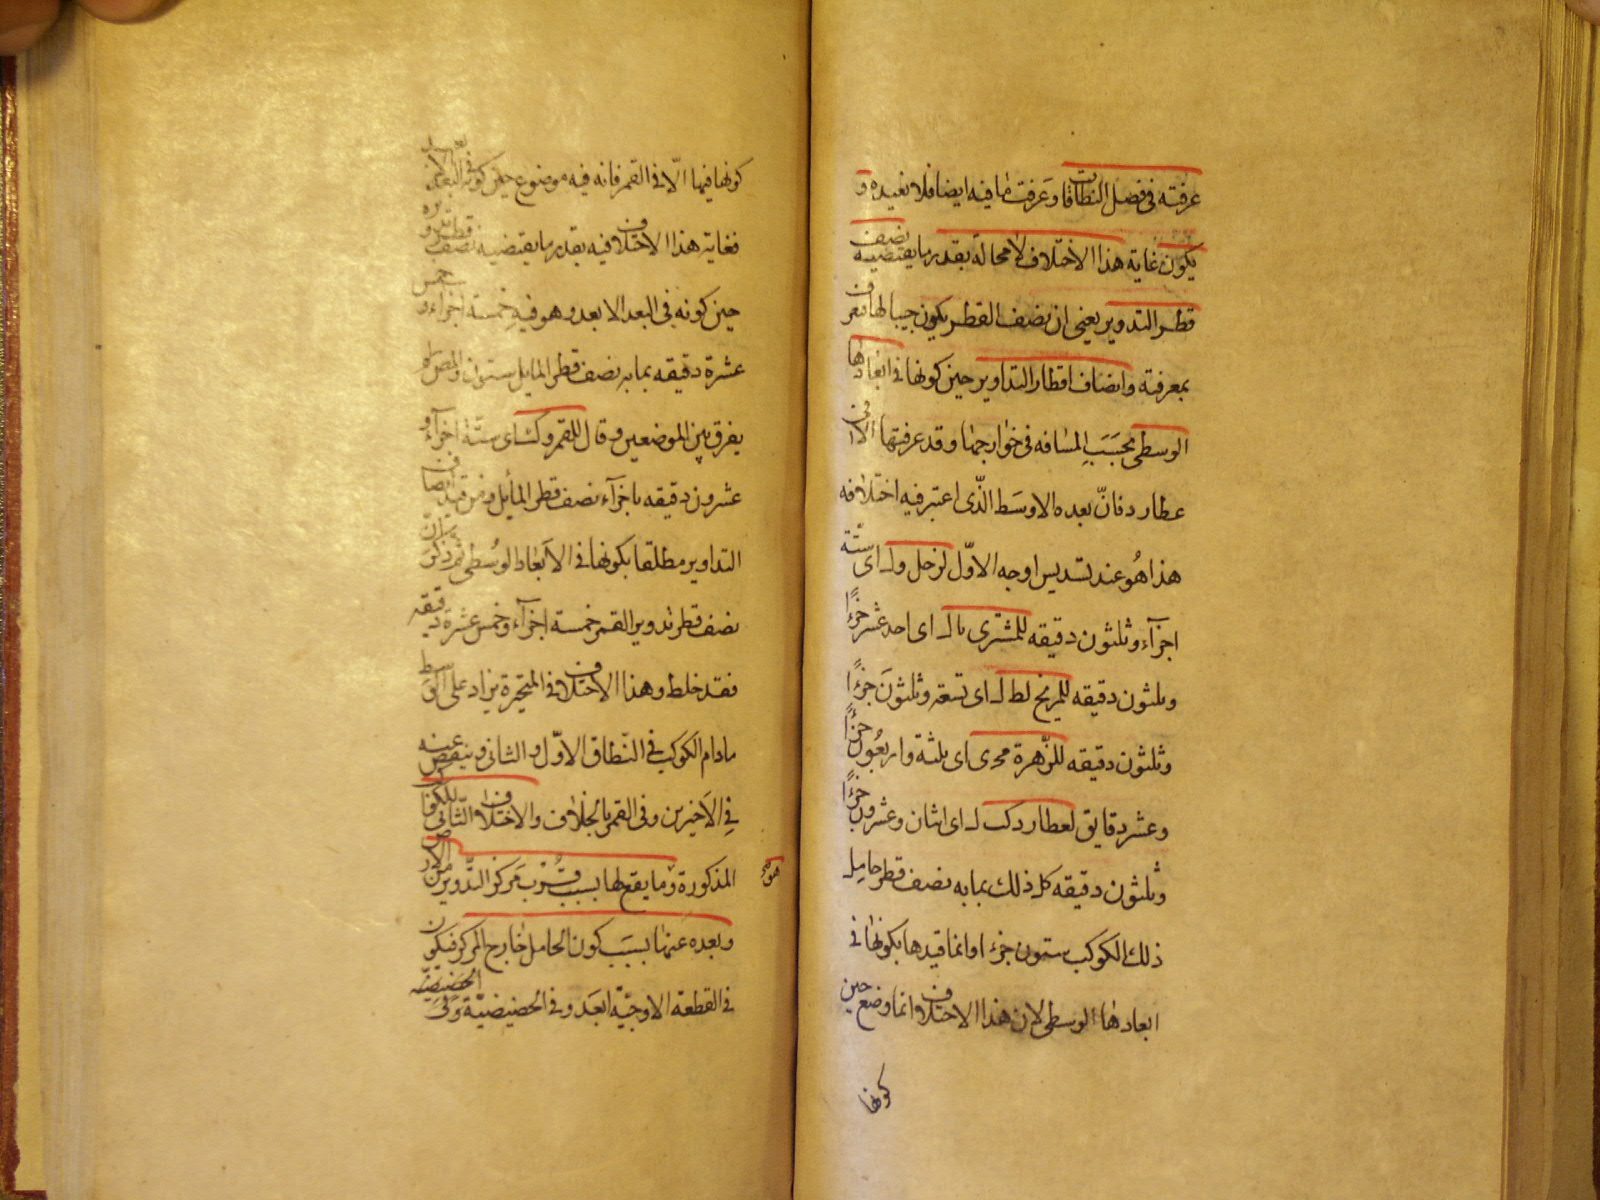 عرفته فی فصل النطاقات وعرفت ما فیه ایضا فلا نعیده و
یکون غایة هذا الاختلاف لا محالة بقدر ما یقتضیه نصف
قطر التدویر یعنی ان نصف القطر یکون جیبا لها فتعرف
بمعرفته وانصاف اقطار التداویر حین کونها فی ابعادها
الوسطی بحسب المسافه فی خوارجها وقد عرفتها الا فی
عطارد فانّ بعده الاوسط الّذی اعتبر فیه اختلافه
هذا هو عند تسدیس اوجه الاوّل لزحل ول اى ستّة
اجزآء وثلثون دقیقه للمشتری یا ل ای احد عشر جزءًا
وثلثون دقیقه للمریخ لط ل ای تسعة وثلثون جزءًا
وثلثون دقیقه للزّهرة مج ی ای ثلثة واربعون جزءًا
وعشر دقایق لعطارد کب ل ای اثنان وعشرون جزءًا
وثلثون دقیقه کل ذلک بما به نصف قطر حامل
ذلک الکوکب ستون جزء اوانما قیدها بکونها فی
ابعادها الوسطی لان هذا الاختلاف انما وضع حین
کونها
کونها فیها الّا فی القمر فانه فیه موضوع حین کونه فی البعد الابعد
فغایة هذا الاختلاف فیه بقدر ما یقتضیه نصف قطر تدویره
حین کونه فی البعد الابعد وهو فیه خمسة اجزاء و خمس
عشرة دقیقه بما به نصف قطر المایل ستون والمصر لم
یفرق بین الموضعین وقال للقمر وک ای ستّة اجزآء و
عشرون دقیقه باجزآء نصف قطر المآیل ومن قید انصاف
التداویر مطلقا بکونها فی الابعاد الوسطی ثم ذکر ان
نصف قطر تدویر القمر خمسة اجزآء وخمس عشرة دقیقه
فقد خلط وهذا الاختلاف فی المتحیرة یزاد علی الوسط
مادام الکوکب فی النّطاق الاوّل و الثانی وینقص عنه
فی الاخیرین وفی القمر بالخلاف والاختلاف الثّانی للکواکب
المذکورة وما یقع لها بسبب قرب مرکز التّدویر من الارض
هو
وبعده عنها بسبب کون الحامل خارج المرکز فیکون
فی القطعة الاوجیّة ابعد وفی الحضیضیّة وفی الحضیضیّة